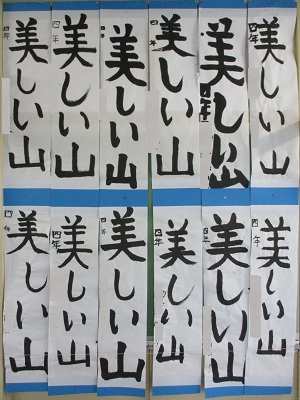 美しい山
四年
美しい山
四年
美しい山
四年
美しい山
四年
美しい山
四年
美しい山
四年
美しい山
四年
美しい山
四年
美しい山
四年
美しい山
四年
美しい山
四年
美しい山
四年